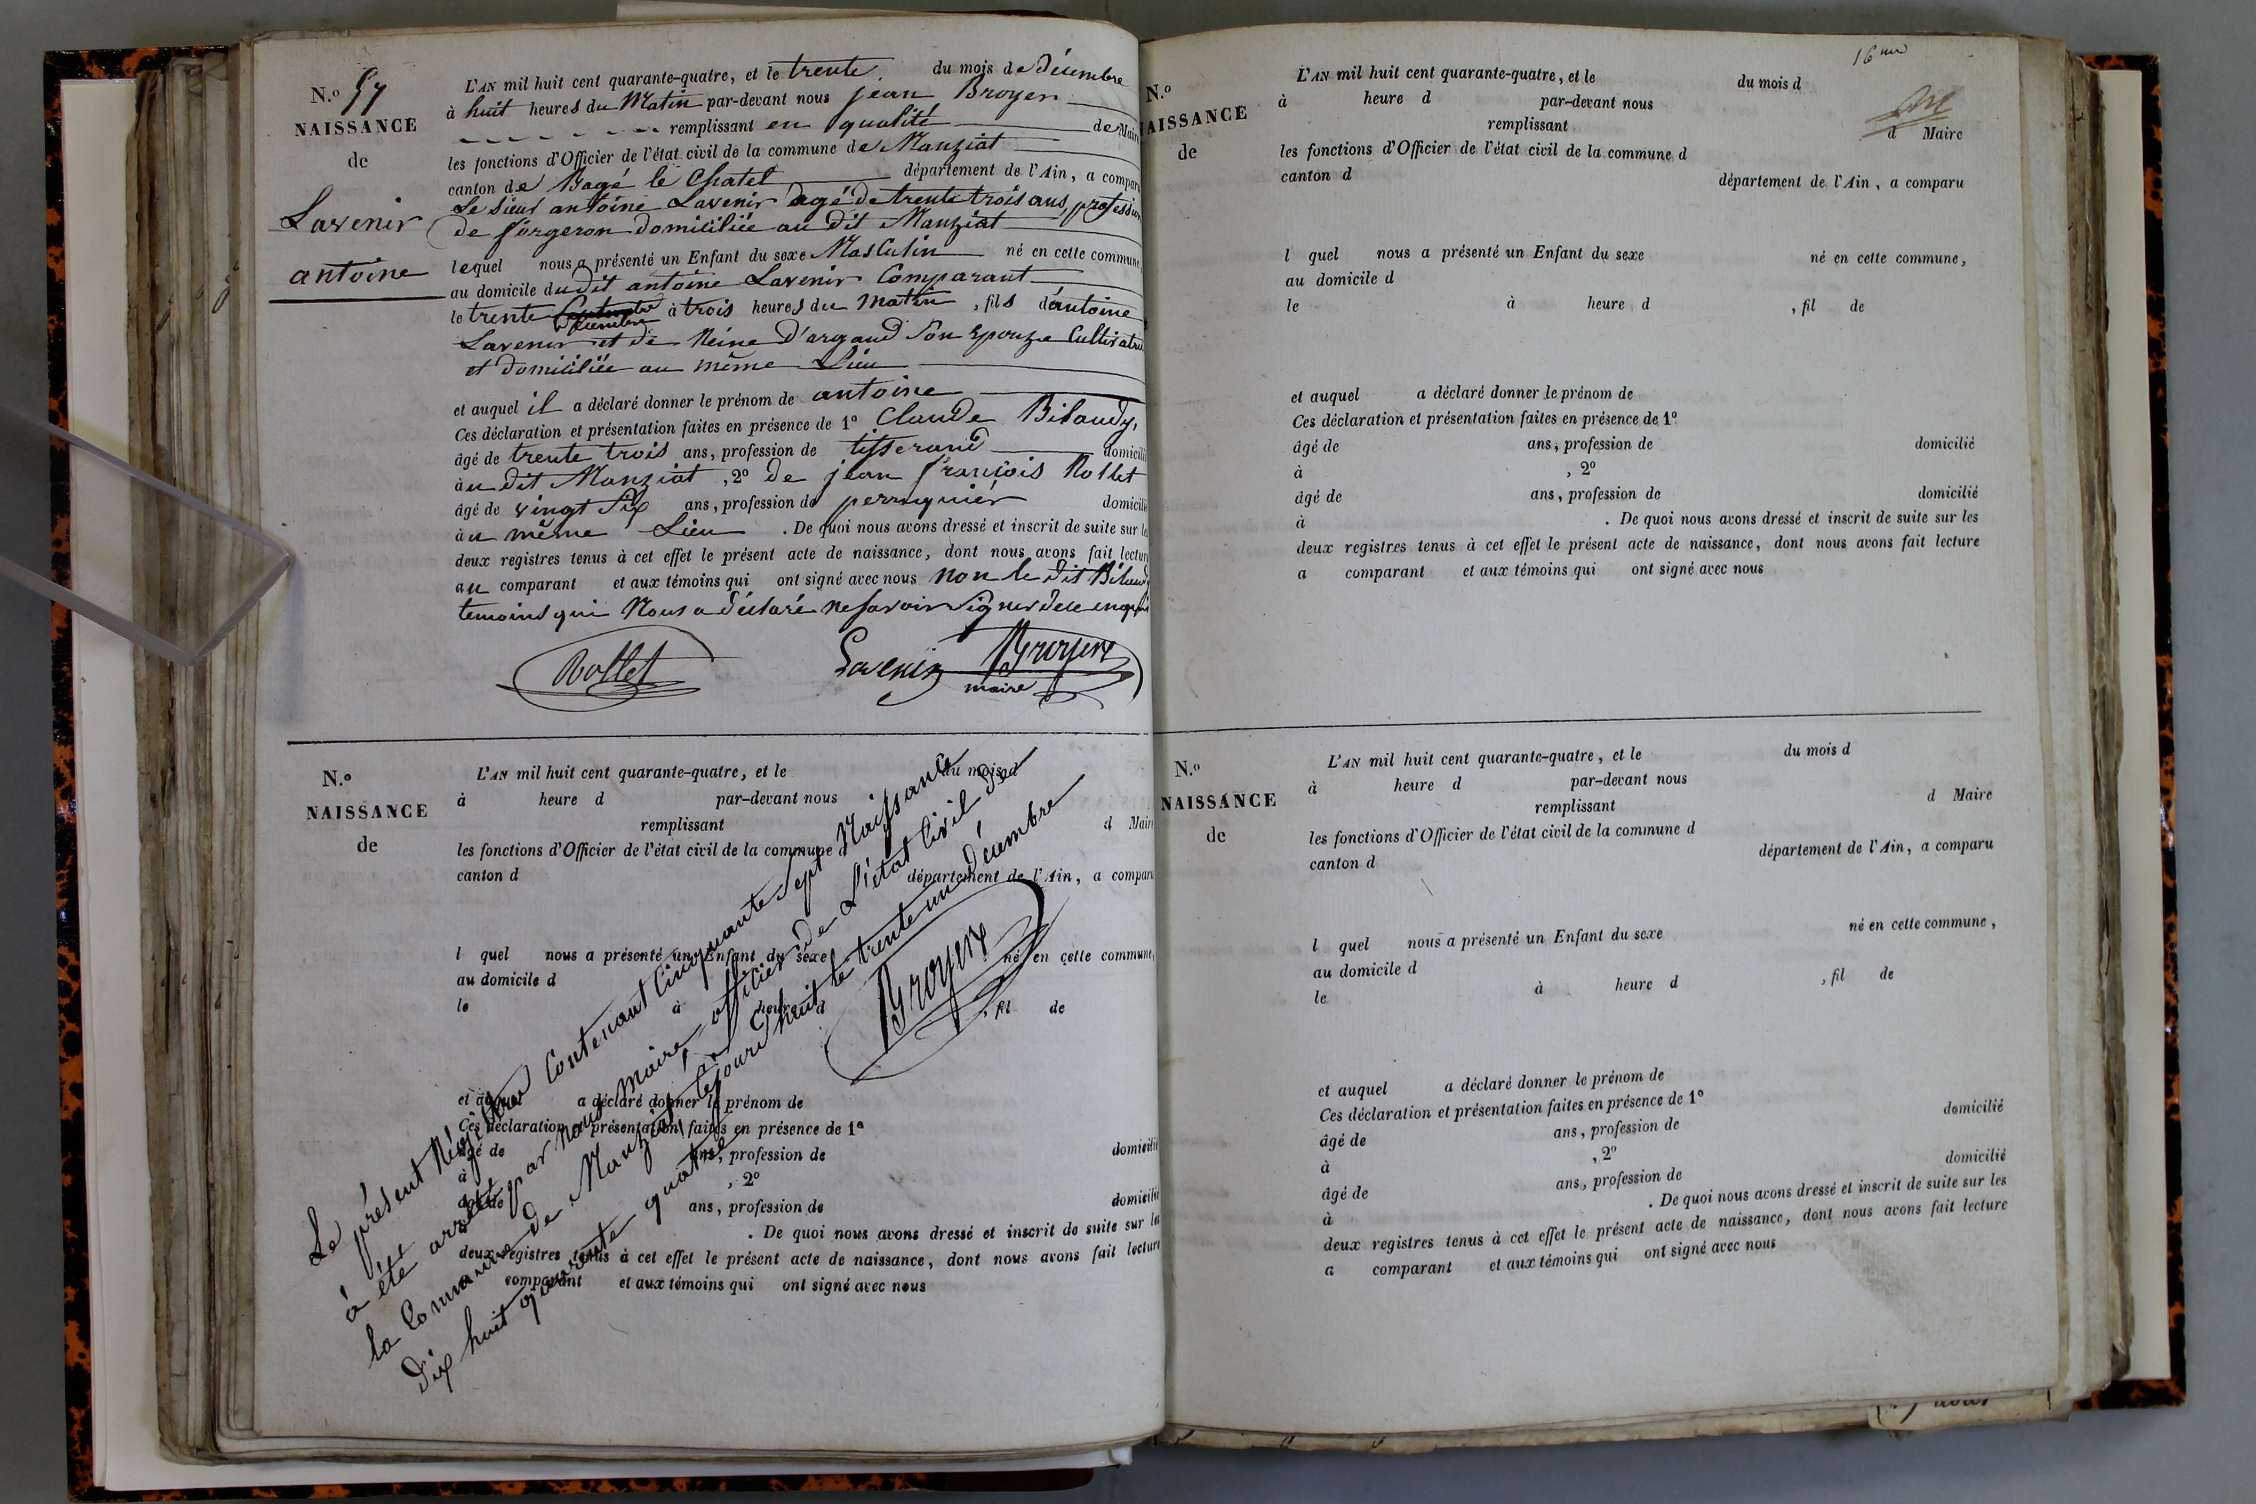 N.º 57
NAISSANCE
de
Lavenir
antoine
L'AN mil huit cent quarante-quatre, et le trente du mois de décembre
à huit heures du Matin par-devant nous jean Broyer
remplissant en qualité de Maire
les fonctions d'Officier de l'état civil de la commune de Manziat
canton de Bagé le Chatel département de l'Ain, a comparu
Le Sieur antoine Lavenir agé de trente trois ans, profession
de forgeron domiciliée au dit Manziat
lequel nous a présenté un Enfant du sexe Masculin né en cette commune,
au domicile dudit antoine Lavenir Comparant
le trente décembre à trois heures du matin, fils d'antoine
Lavenir et de Reine D'argaud son Epouze Cultivatrice
et domiciliée au même Lieu
et auquel il a déclaré donner le prénom de antoine
Ces déclaration et présentation faites en présence de 1º Claude Bilaudy,
âgé de trente trois ans, profession de tisserand domicilié
àu dit Manziat, 2º de jean françois Rollet
âgé de vingt six ans, profession de perruquiér domicilié
àu même Lieu. De quoi nous avons dressé et inscrit de suite sur les
deux registres tenus à cet effet le présent acte de naissance, dont nous avons fait lecture
au comparant et aux témoins qui ont signé avec nous non le dit Bilaudy
temoins qui Nous a déclaré ne savoir signer de ce enquis
Rollet Lavenir Broyer
maire
N.º
NAISSANCE
de
L'AN mil huit cent quarante-quatre, et le du mois d
à heure d par-devant nous
remplissant d Maire
les fonctions d'Officier de l'état civil de la commune d
canton d département de l'Ain, a comparu
l quel nous a présenté un Enfant du sexe né en cette commune,
au domicile d
le à heure d , fil de
et auquel a déclaré donner le prénom de
Ces déclaration et présentation faites en présence de 1º
âgé de ans, profession de domicilié
à , 2º
âgé de ans, profession de domicilié
à . De quoi nous avons dressé et inscrit de suite sur les
deux registres tenus à cet effet le présent acte de naissance, dont nous avons fait lecture
a comparant et aux témoins qui ont signé avec nous
Le présent Régistre Contenant Cinquante sept Naissance
à été arrêté par nous maire, officier de L'état Civil de
la Commune de Manziat, le jourd'huit le trente un décembre
dix huit quarente quatre
Broyer
16me
N.º
NAISSANCE
de
L'AN mil huit cent quarante-quatre, et le du mois d
à heure d par-devant nous
remplissant d Maire
les fonctions d'Officier de l'état civil de la commune d
canton d département de l'Ain, a comparu
l quel nous a présenté un Enfant du sexe né en cette commune,
au domicile d
le à heure d , fil de
et auquel a déclaré donner le prénom de
Ces déclaration et présentation faites en présence de 1º
âgé de ans, profession de domicilié
à , 2º
âgé de ans, profession de domicilié
à . De quoi nous avons dressé et inscrit de suite sur les
deux registres tenus à cet effet le présent acte de naissance, dont nous avons fait lecture
a comparant et aux témoins qui ont signé avec nous
N.º
NAISSANCE
de
L'AN mil huit cent quarante-quatre, et le du mois d
à heure d par-devant nous
remplissant d Maire
les fonctions d'Officier de l'état civil de la commune d
canton d département de l'Ain, a comparu
l quel nous a présenté un Enfant du sexe né en cette commune,
au domicile d
le à heure d , fil de
et auquel a déclaré donner le prénom de
Ces déclaration et présentation faites en présence de 1º
âgé de ans, profession de domicilié
à , 2º
âgé de ans, profession de domicilié
à . De quoi nous avons dressé et inscrit de suite sur les
deux registres tenus à cet effet le présent acte de naissance, dont nous avons fait lecture
a comparant et aux témoins qui ont signé avec nous